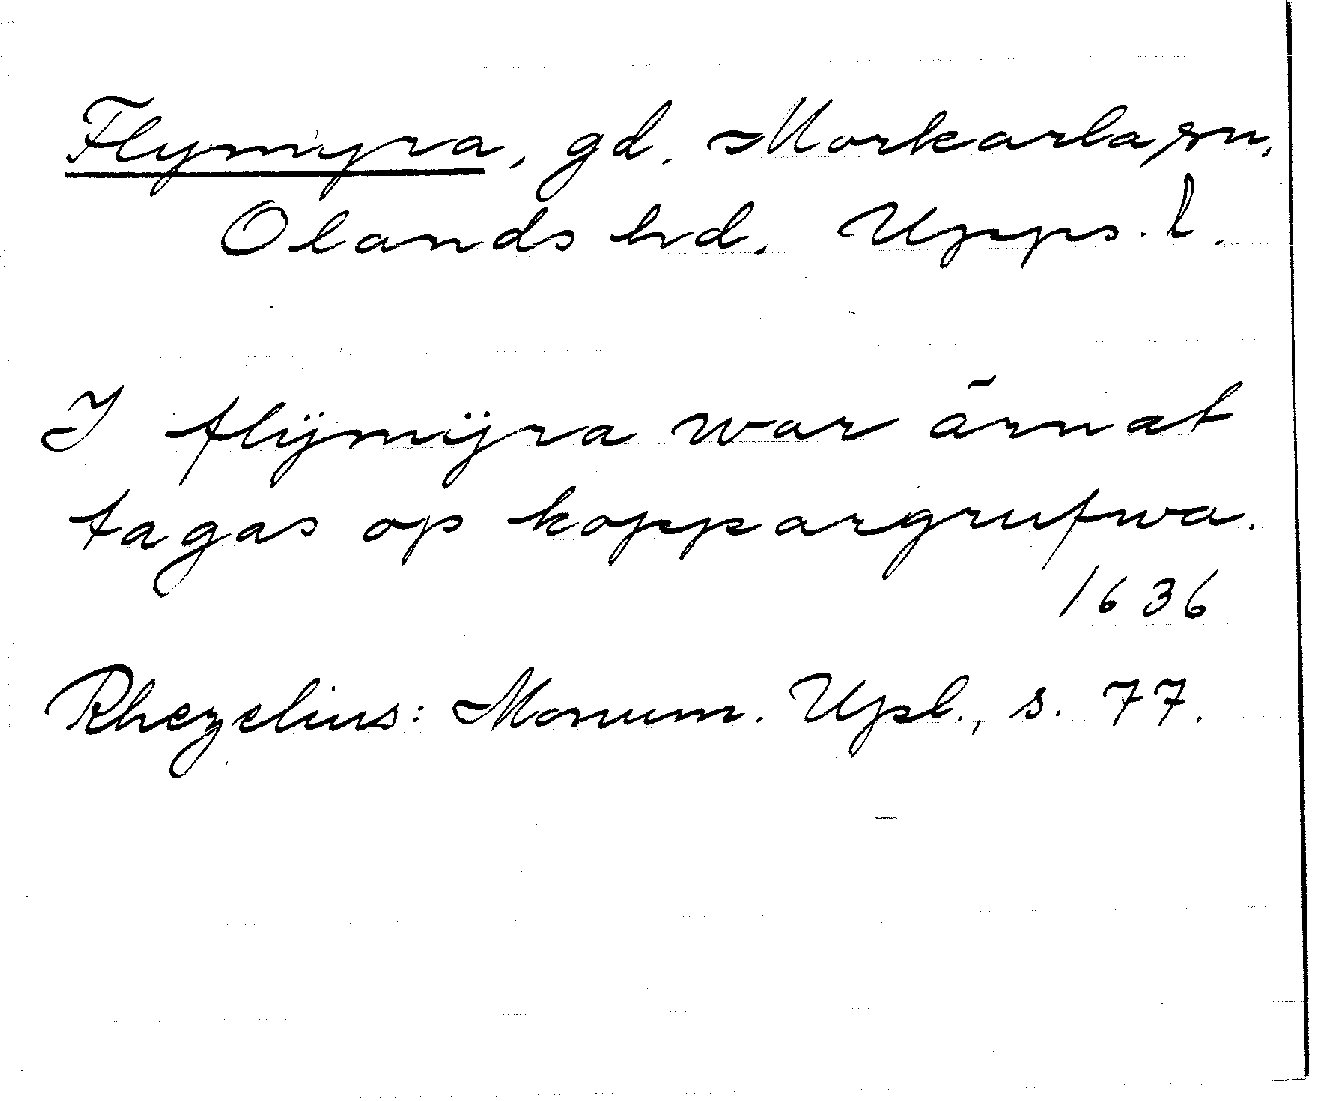 Flymyra, gd. Morkarla sn,
Olands hd. Upps. l.
I flÿmÿra war ārnat
tagas op koppargrufwa.
1636
Rhezelius: Monum. Upl., s. 77.